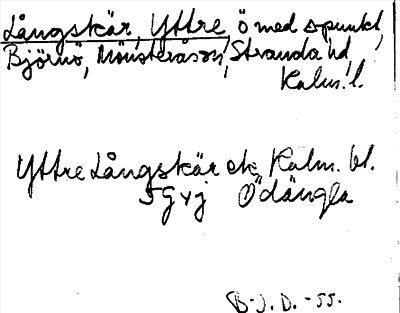 Långskär, Yttre ö med spunkt,
Björnö, Mönsterås sn, Stranda hd,
Kalm. l.
Yttre Långskär ek Kalm. bl.
5G4j Ödängla
B.J.D. -55.